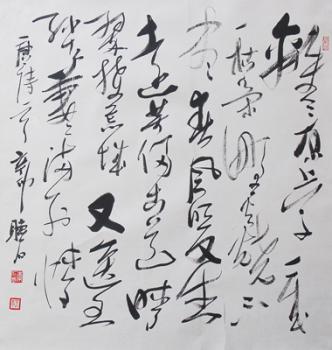 離離原上草一歲
一枯榮野火燒不
盡春風吹又生
遠芳侵古道晴
翠接荒城又送王
孫去萋萋滿別情
唐詩